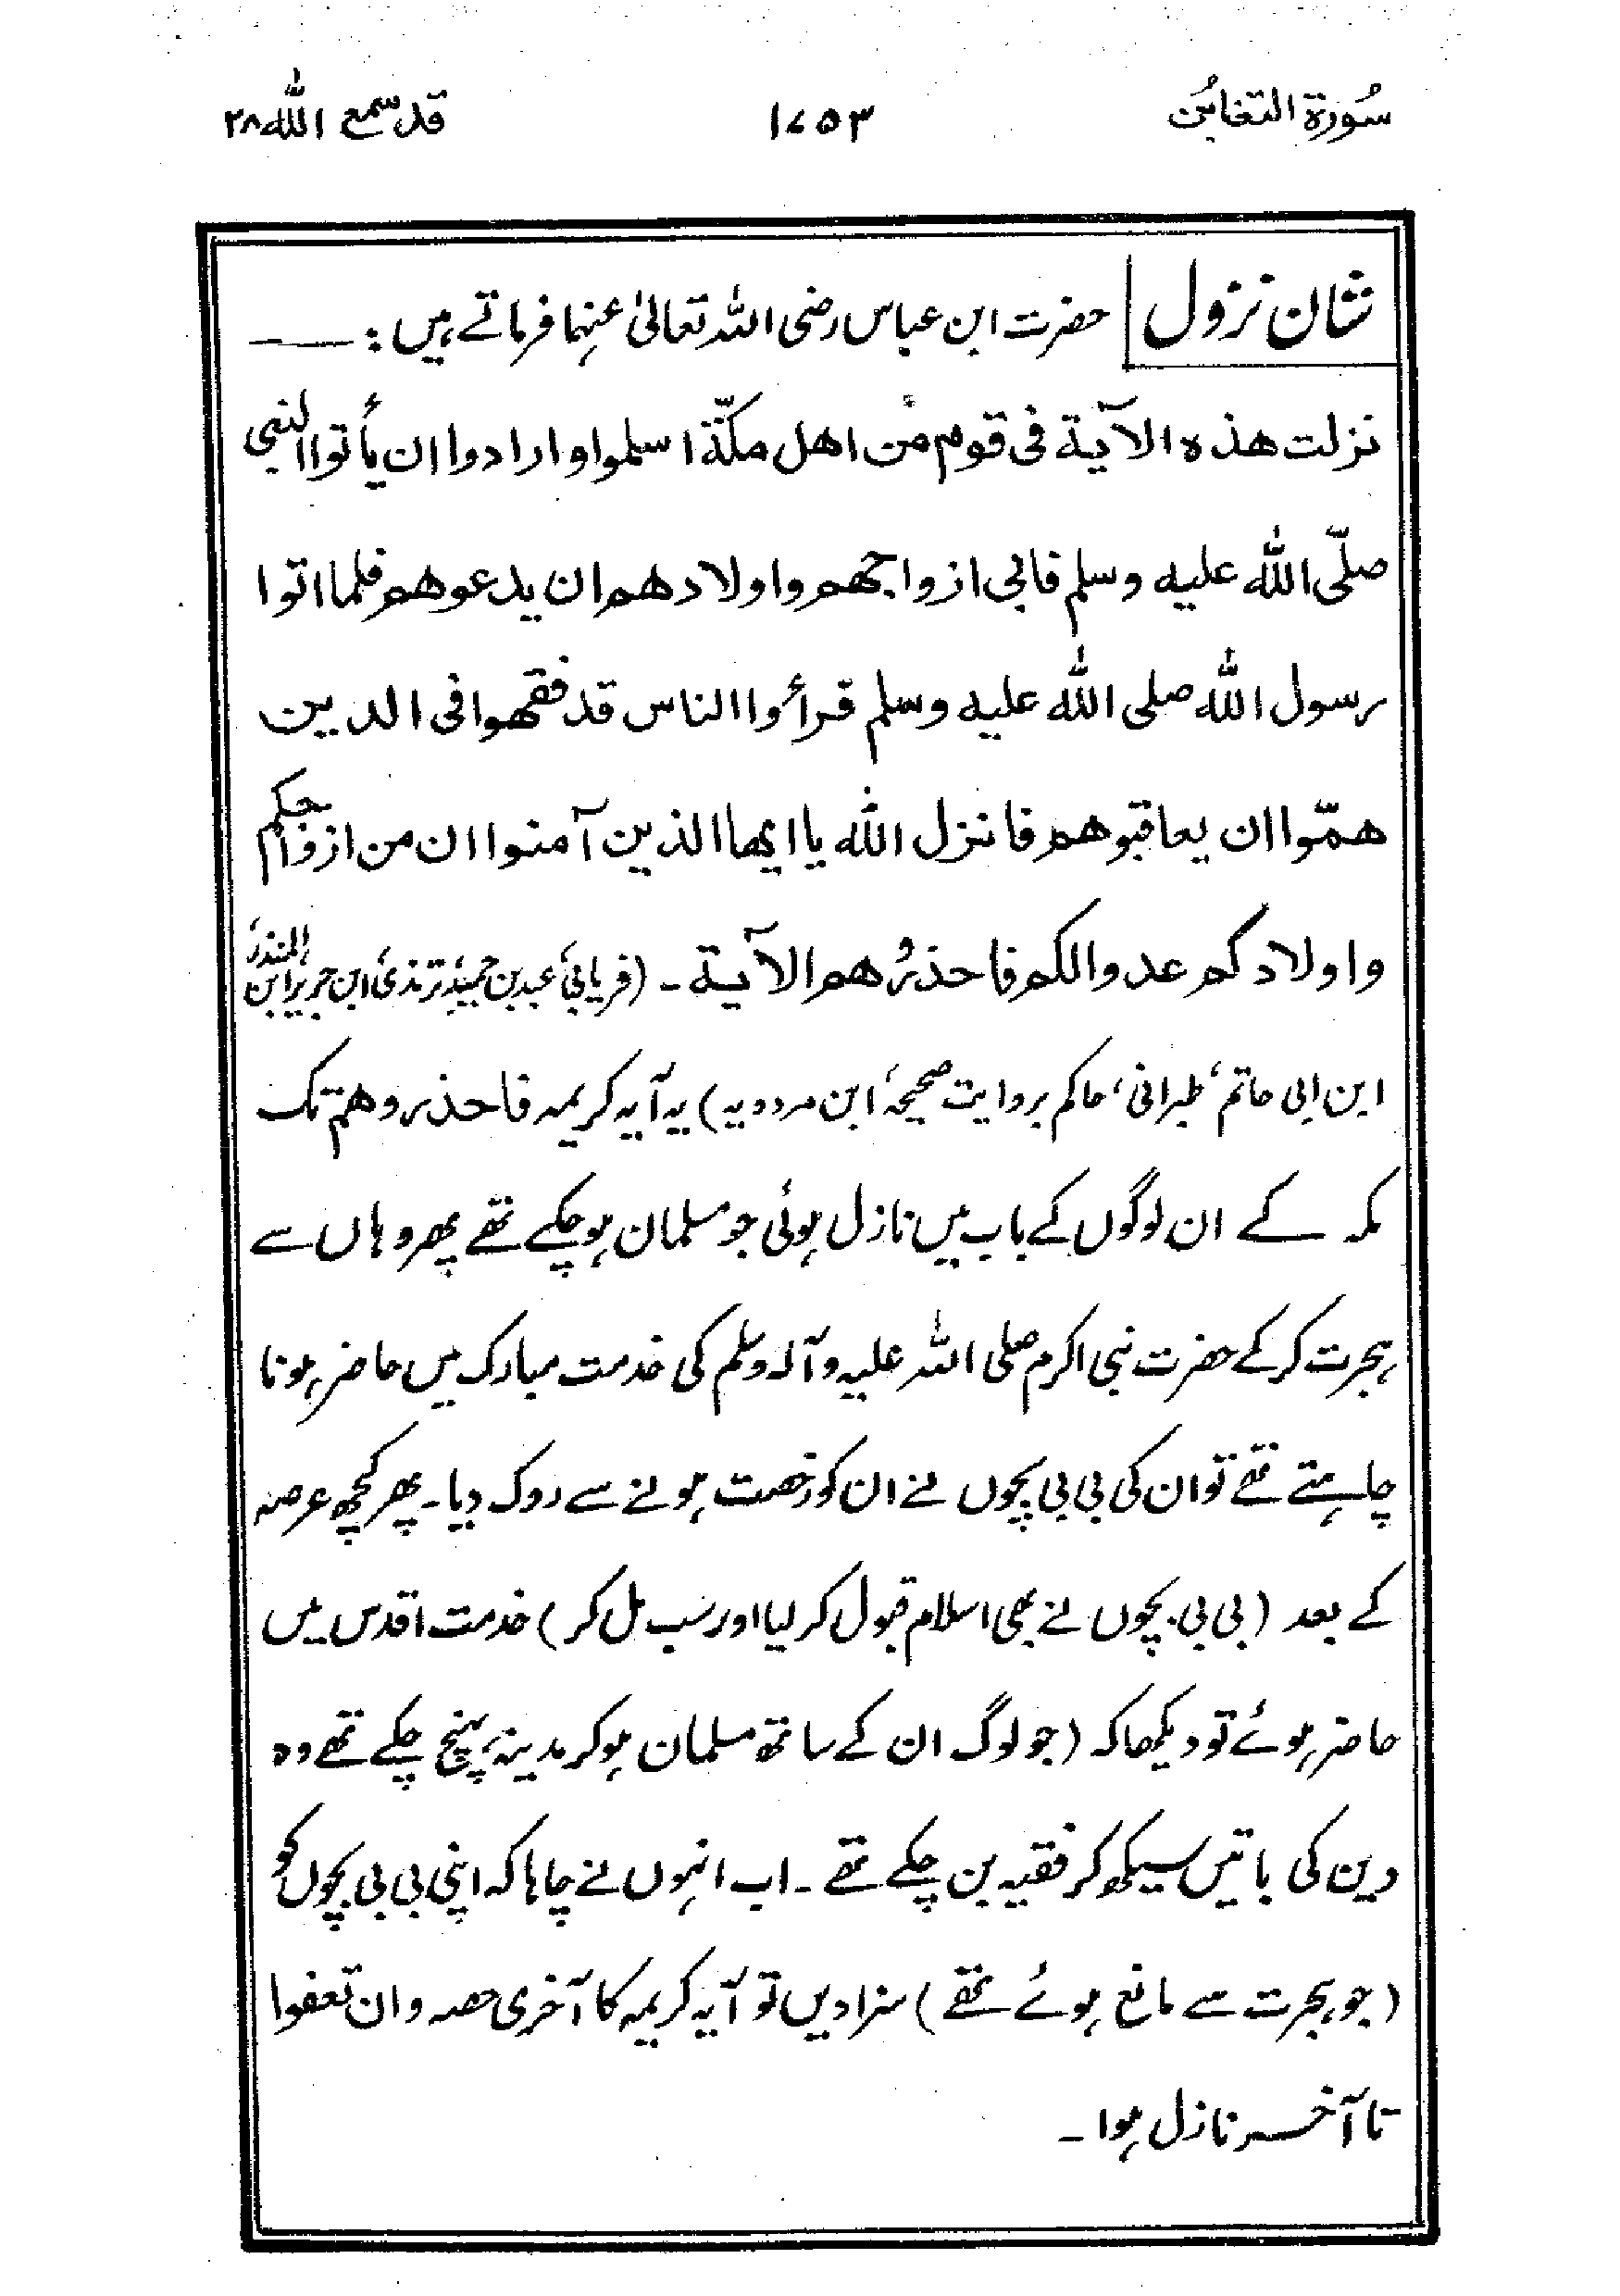 سُورۃ التغابُن ۱۷۵۳ قد سمع اللہ ۲۸
شان نزول حضرت ابن عباس رضی اللہ تعالیٰ عنہما فرماتے ہیں : ـــــ
نزلت هذه الآية فى قوم من اهل مكّة اسلموا و ارادوا ان يأتوا النبى
صلّى الله عليه وسلم فابى ازواجهم واولادهم ان يدعوهم فلما اتوا
رسول الله صلى الله عليه وسلم فرأوا الناس قد فقهوا فى الدين
همّوا ان يعاقبوهم فانزل الله يا ايها الذين آمنوا ان من ازواجكم
واولادكم عدوا لكم فاحذرُوهم الآية ۔ (فریابی، عبد بن حمید، ترمذی، ابن جریر، ابن المنذر،
ابن ابی حاتم، طبرانی، حاکم بروایت صحیحہ، ابن مردویہ) یہ آیہ کریمہ فاحذروهم تک
مکہ کے ان لوگوں کے باب میں نازل ہوئی جو مسلمان ہو چکے تھے پھر وہاں سے
ہجرت کر کے حضرت نبی اکرم صلی اللہ علیہ وآلہ وسلم کی خدمت مبارک میں حاضر ہونا
چاہتے تھے تو ان کی بی بی بچوں نے ان کو رخصت ہونے سے روک دیا ۔ پھر کچھ عرصہ
کے بعد (بی بی بچوں نے بھی اسلام قبول کر لیا اور سب مل کر) خدمت اقدس میں
حاضر ہوئے تو دیکھا کہ (جو لوگ ان کے ساتھ مسلمان ہو کر مدینہ پہنچ چکے تھے وہ
دین کی باتیں سیکھ کر فقیہ بن چکے تھے ۔ اب انہوں نے چاہا کہ اپنی بی بی بچوں کو
(جو ہجرت سے مانع ہوئے تھے) سزا دیں تو آیہ کریمہ کا آخری حصہ وان تعفوا
تا آخر نازل ہوا ۔